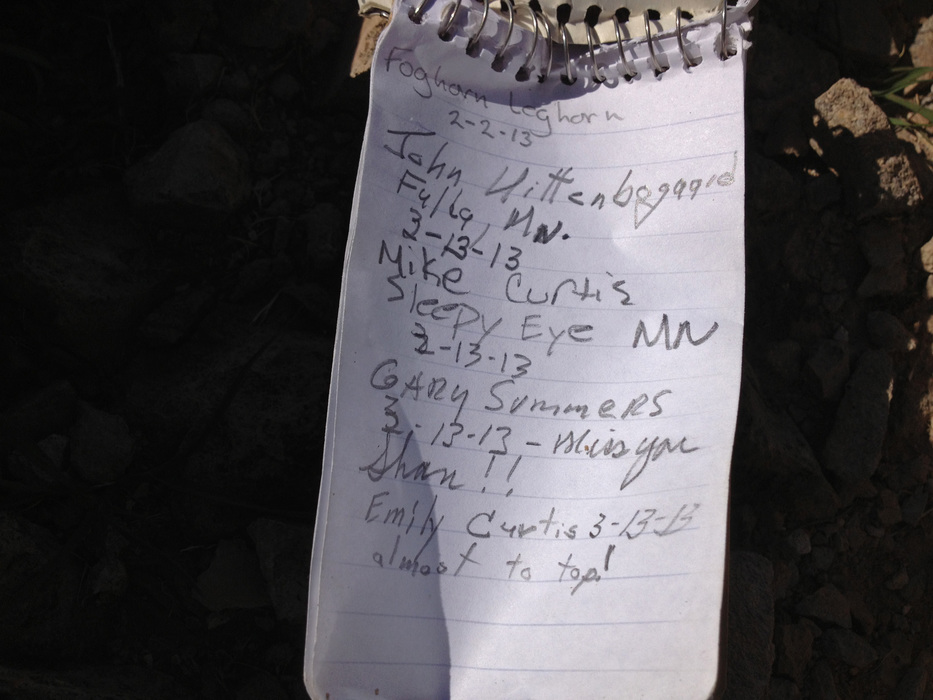 Foghorn Leghorn
2-2-13
John Hittenbogaard
Fulda, MN.
3-13-13
Mike Curtis
Sleepy Eye MN
3-13-13
GARY SUMMERS
3-13-13 - Miss you
Shan!!
Emily Curtis 3-13-13
almost to top!